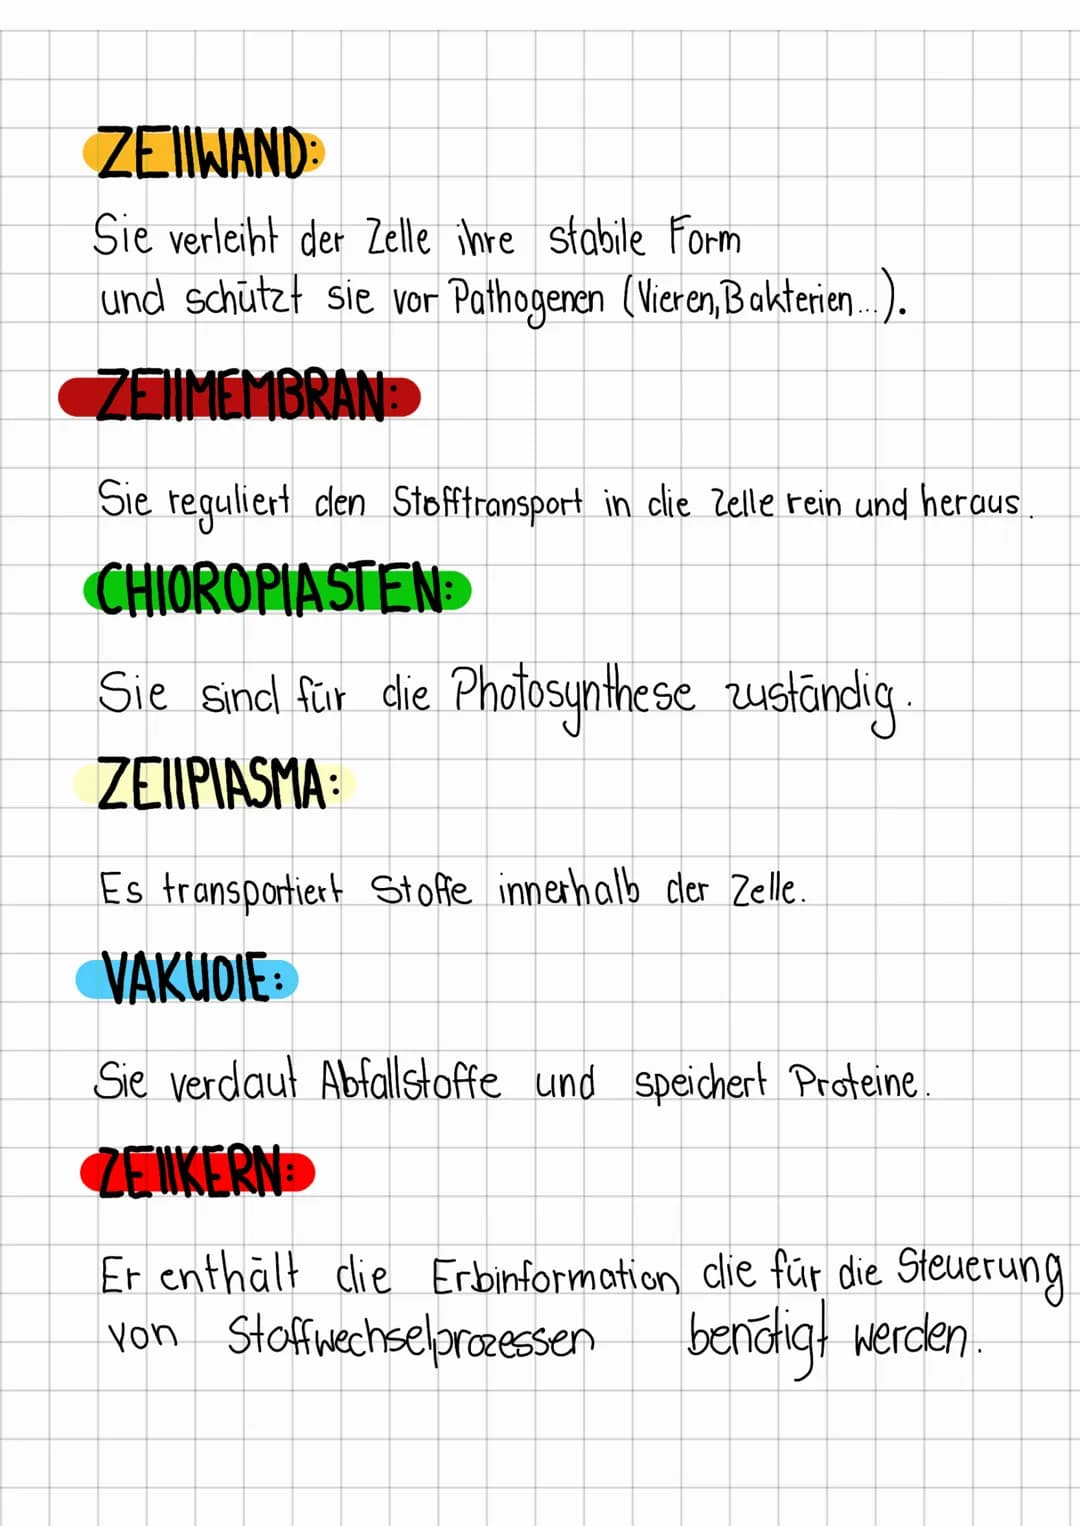 ZEllWAND:
Sie verleiht der Zelle ihre stabile Form
und schützt sie vor Pathogenen (Vieren, Bakterien...).
ZEllMEMBRAN:
Sie reguliert den Stofftransport in die Zelle rein und heraus.
CHlOROPlASTEN:
Sie sind für die Photosynthese zuständig.
ZEllPlASMA:
Es transportiert Stoffe innerhalb der Zelle.
VAKUOlE:
Sie verdaut Abfallstoffe und speichert Proteine.
ZEllKERN:
Er enthält die Erbinformation die für die Steuerung
von Stoffwechselprozessen benötigt werden.